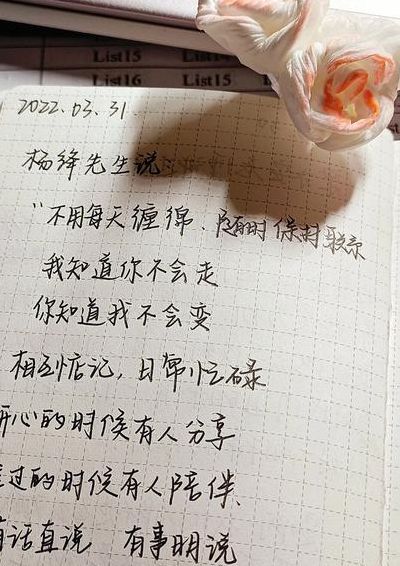 List15
List16 List15 List
2022.03.31
杨绛先生说:
"不用每天缠绵、随时保持联系
我知道你不会走
你知道我不会变
相互惦记,日常忙碌
开心的时候有人分享
难过的时候有人陪伴
有话直说 有事明说